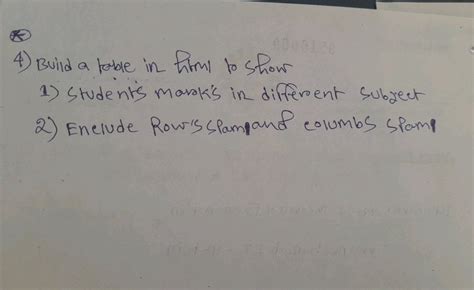 4) Build a table in html to show
1) Students marks in different subject
2) Enclude Row's spam and columbs spam